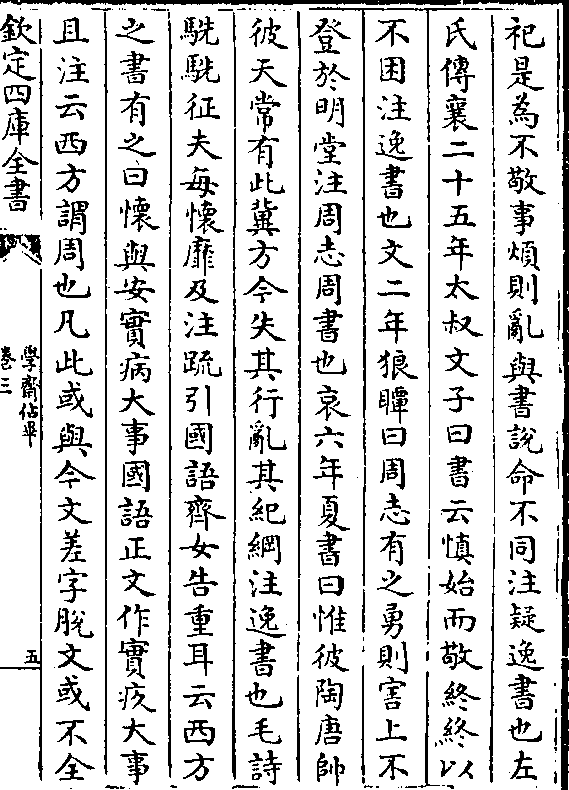 祀是為不敬事煩則亂與書說命不同注疑逸書也左
氏傳襄二十五年太叔文子曰書云慎始而敬終終以
不困注逸書也文二年狼瞫曰周志有之勇則害上不
登於明堂注周志周書也哀六年夏書曰惟彼陶唐帥
彼天常有此冀方今失其行亂其紀綱注逸書也毛詩
駪駪征夫每懷靡及注䟽引國語齊女告重耳云西方
之書有之曰懷與安實病大事國語正文作實疚大事
且注云西方謂周也凡此或與今文差字脫文或不全
欽定四庫全書
學齋佔畢
卷三
五